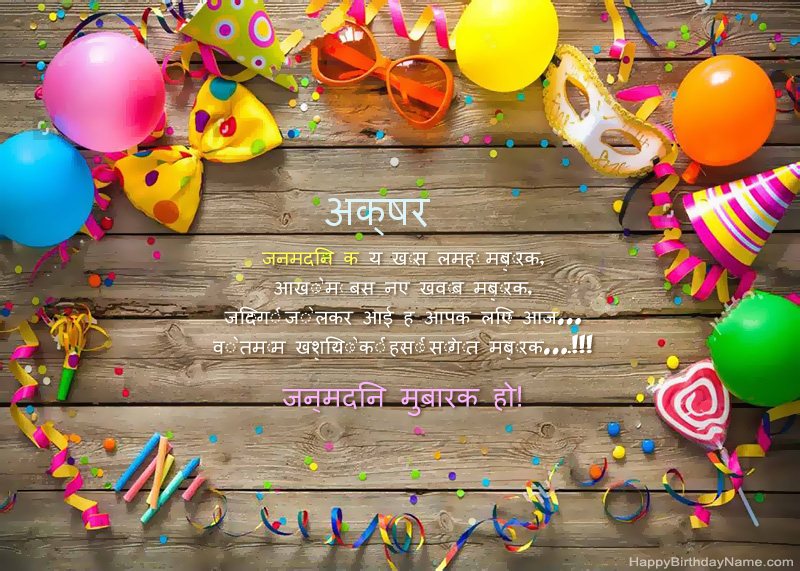 अक्षर
जनमदिन क य खास लमहा मुबारक,
आंखों में बसे नए ख्वाब मुबारक,
जिंदगी जो लेकर आई है आपके लिए आज...
वो तमाम खुशियों की हंसी सौगात मुबारक....!!!
जन्मदिन मुबारक हो!
HappyBirthdayName.com